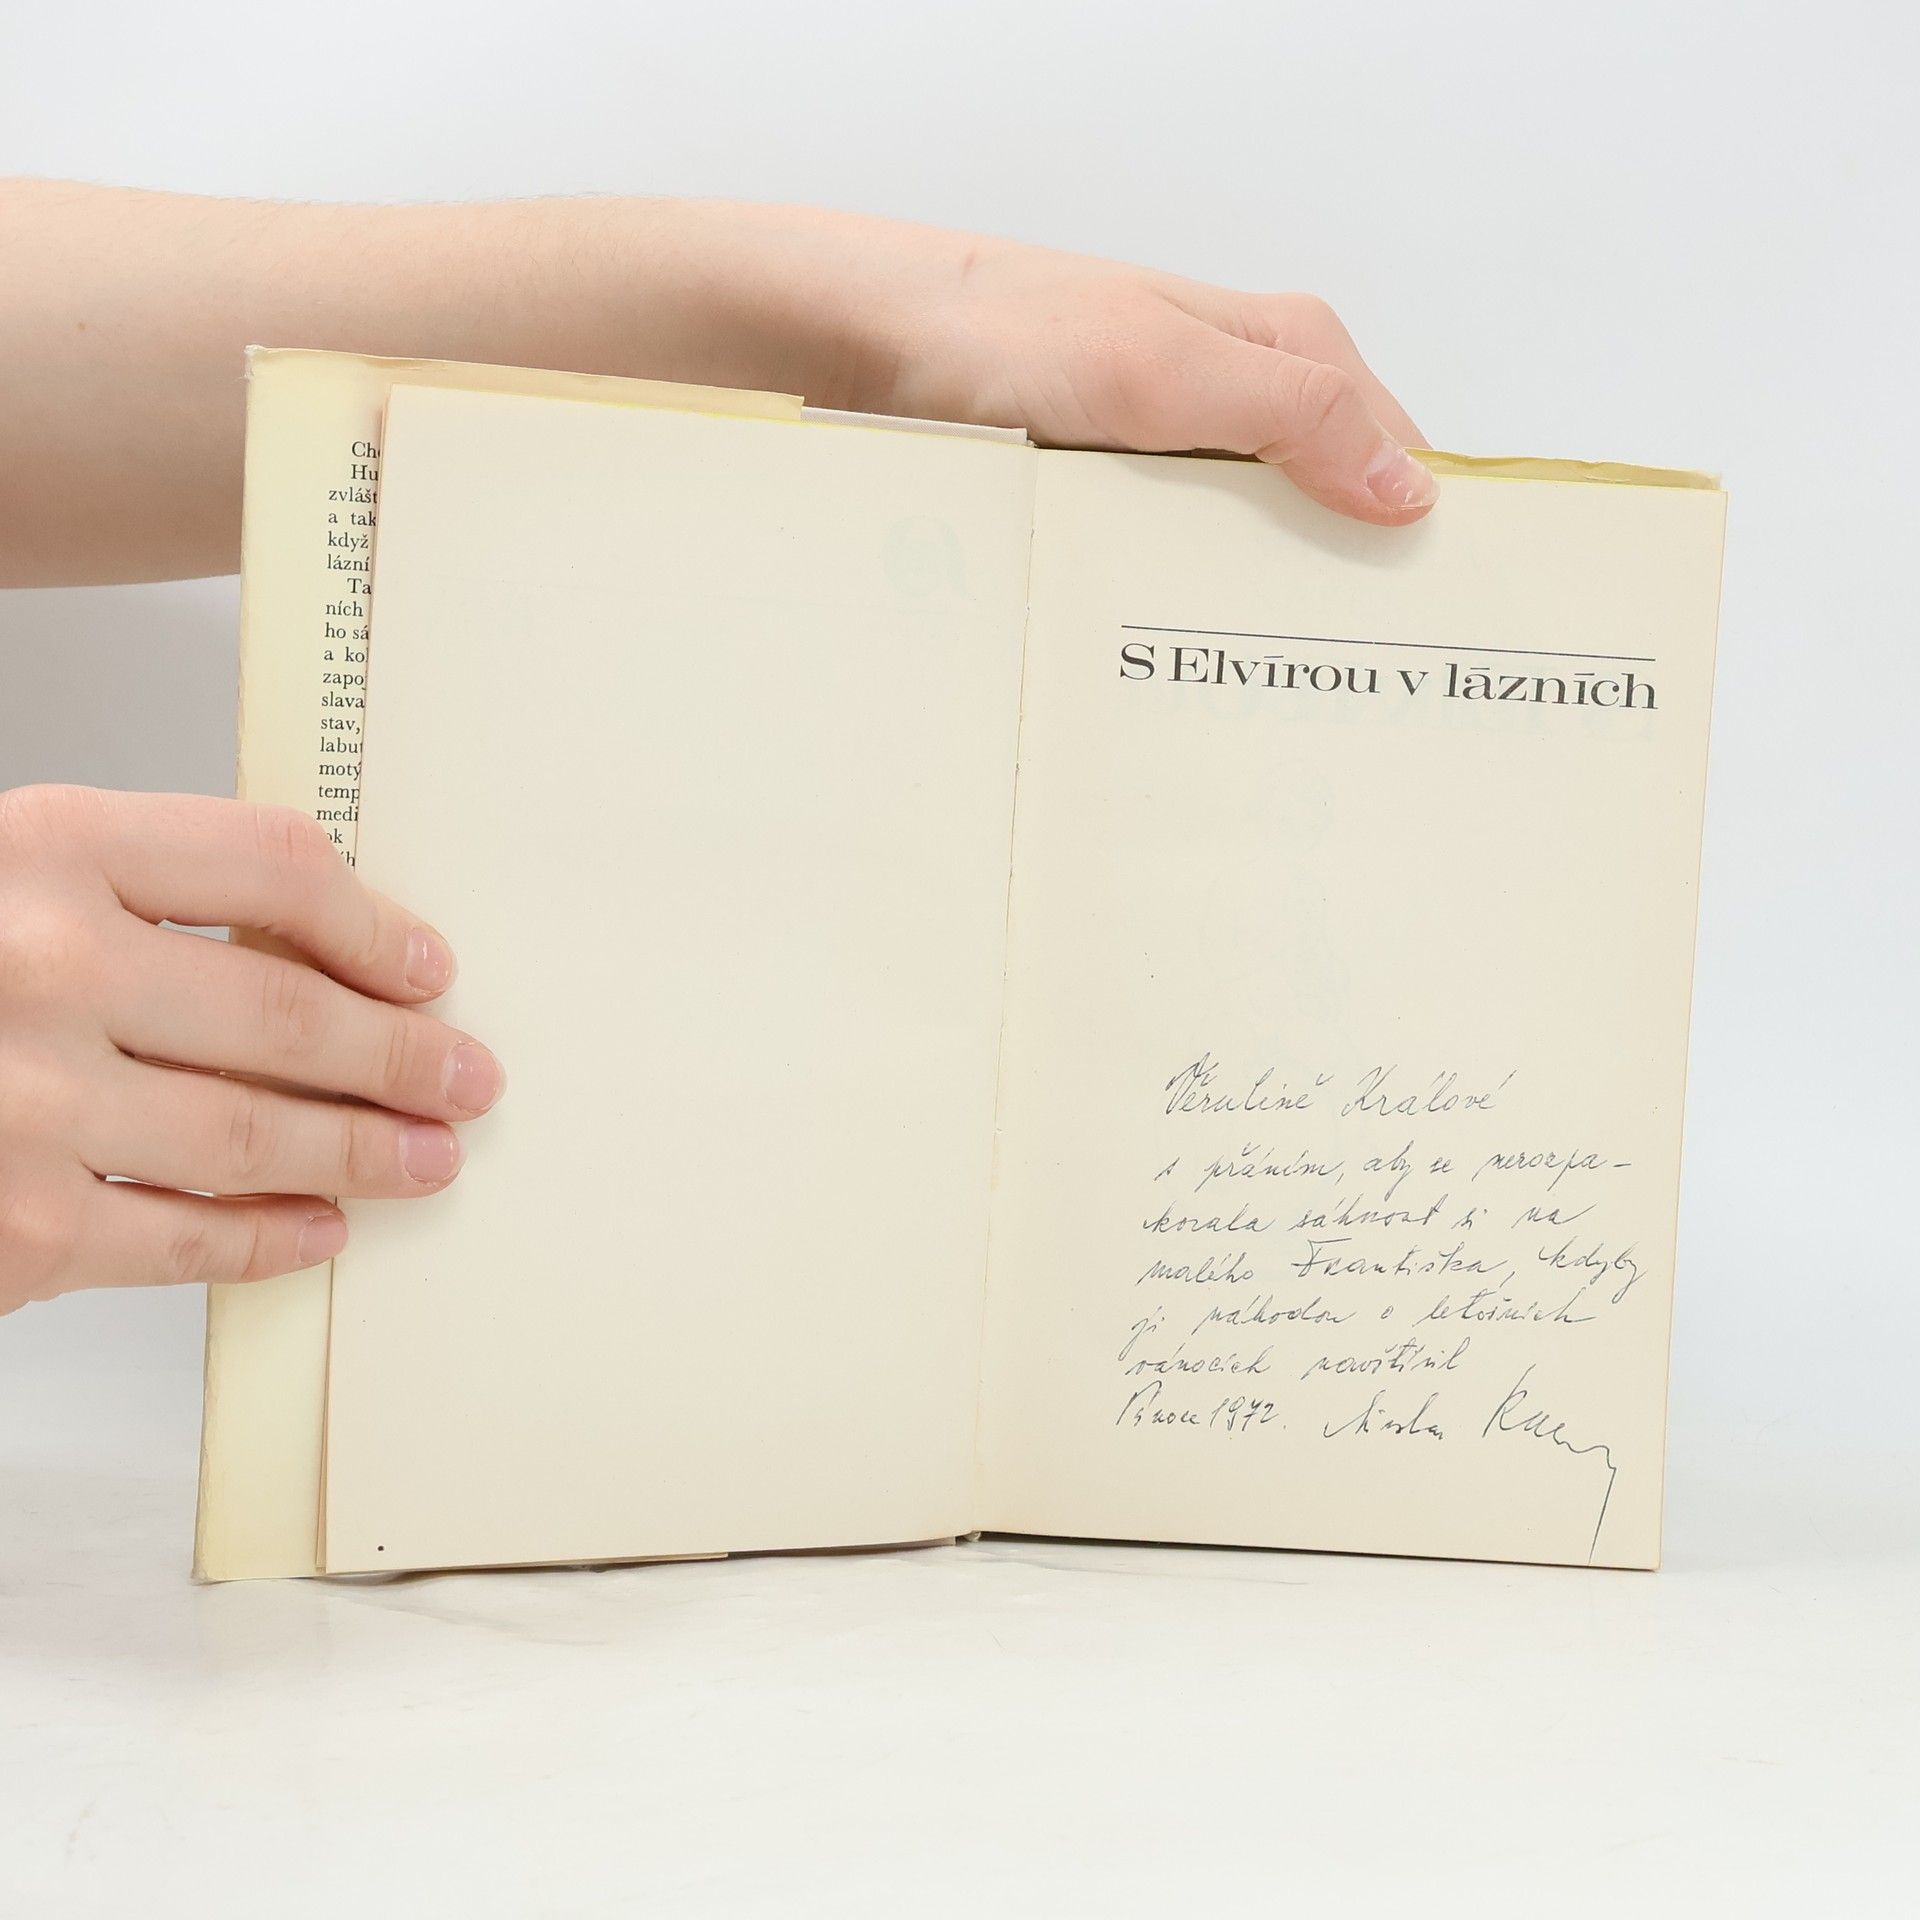 Ch
Hu
zvlášt
a tak
když
lázní
Ta
ních
ho sá
a kol
zapoj
slava
stav,
labut
motý
temp
medi
ok
íh
S Elvírou v lázních
Věrulině Králové
s přáním, aby se nerozpa-
kovala sáhnout si na
malého Františka, kdyby
ji náhodou o letošních
vánocích navštívil
Vánoce 1972.